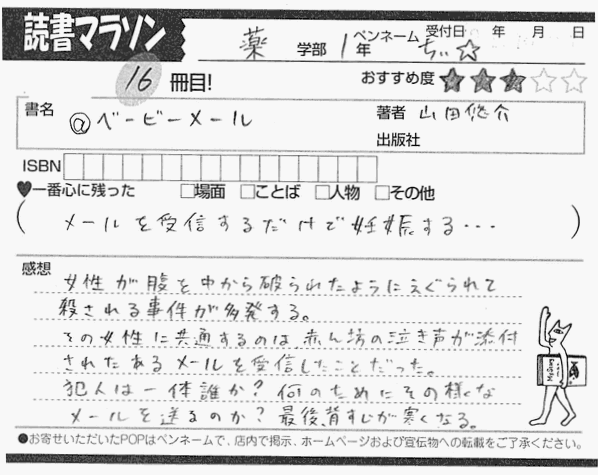 読書マラソン
薬 学部 1年 ペンネーム ちぃ☆ 受付日 年 月 日
16 冊目! おすすめ度 ★★★☆☆
書名 @ベービーメール 著者 山田悠介
出版社
ISBN
♥一番心に残った □場面 □ことば □人物 □その他
(メールを受信するだけで妊娠する・・・)
感想
女性が腹を中から破られたようにえぐられて
殺される事件が多発する。
その女性に共通するのは、赤ん坊の泣き声が添付
されたあるメールを受信したことだった。
犯人は一体誰か?何のためにその様な
メールを送るのか?最後、背すじが寒くなる。
●お寄せいただいたPOPはペンネームで、店内で掲示、ホームページおよび宣伝物への転載をご了承ください。